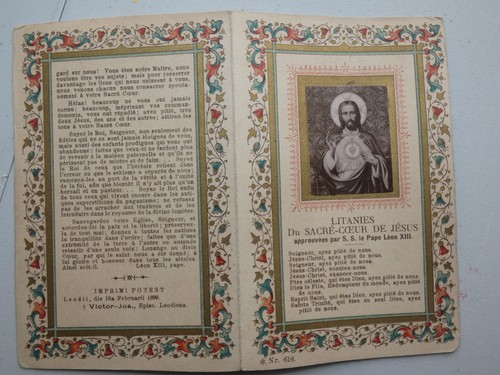 gard sur nous! Vous êtes notre Maître, nous
voulons être vos sujets; mais pour resserrer
davantage les liens qui nous unissent à vous,
nous venons chacun nous consacrer sponta-
nément à votre Sacré Cœur.
Hélas! beaucoup ne vous ont jamais
connu: beaucoup, méprisant vos comman-
dements, vous ont répudié; ayez pitié, très
doux Jésus, des uns et des autres; attirez-les
tous à votre Sacré Cœur.
Soyez le Roi, Seigneur, non seulement des
fidèles qui ne se sont jamais éloignés de vous,
mais aussi des enfants prodigues qui vous ont
abandonné; faites que ceux-ci ne tardent plus
de revenir à la maison paternelle et qu'ils ne
périssent pas de misère et de faim. Soyez
le Roi de ceux que l'hérésie retient dans
l'erreur ou que le schisme a séparés de nous;
ramenez-les au port de la vérité et à l'unité
de la foi, afin que bientôt il n'y ait plus qu'un
bercail et un pasteur. Soyez le Roi enfin
de tous ceux qui vivent encore dans les anti-
ques superstitions du paganisme; ne refusez
pas de les arracher aux ténèbres et de les
introduire dans le royaume de la divine lumière.
Sauvegardez votre Eglise, Seigneur, et
accordez-lui la paix et la liberté; préservez-
la de tout mal; donnez à toutes les nations
la tranquillité dans l'ordre; faites que d'une
extrémité de la terre à l'autre on entende
retentir d'une seule voix: Louange au divin
Cœur, par qui le salut nous a été donné; à
lui gloire et honneur dans tous les siècles
Ainsi soit-il. Léon XIII, pape.
IMPRIMI POTEST
Leodii, die 16a Februarii 1899.
† Victor-Jos., Episc. Leodiens.
LITANIES
DU SACRÉ-CŒUR DE JÉSUS
approuvées par S. S. le Pape Léon XIII.
Seigneur, ayez pitié de nous.
Jésus-Christ, ayez pitié de nous.
Seigneur, ayez pitié de nous.
Jésus-Christ, écoutez-nous.
Jésus-Christ, exaucez-nous.
Père céleste, qui êtes Dieu, ayez pitié de nous.
Dieu le Fils, Rédempteur du monde, ayez pitié
de nous.
Esprit Saint, qui êtes Dieu, ayez pitié de nous.
Sainte Trinité, qui êtes un seul Dieu, ayez
pitié de nous.
Nr. 616.